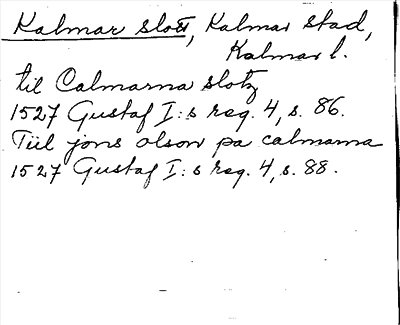 Kalmar slott, Kalmar stad,
Kalmar l.
til Calmarna slotz
1527 Gustaf I:s reg. 4, s. 86.
Tiil jons olson pa calmarna
1527 Gustaf I:s reg. 4, s. 88.